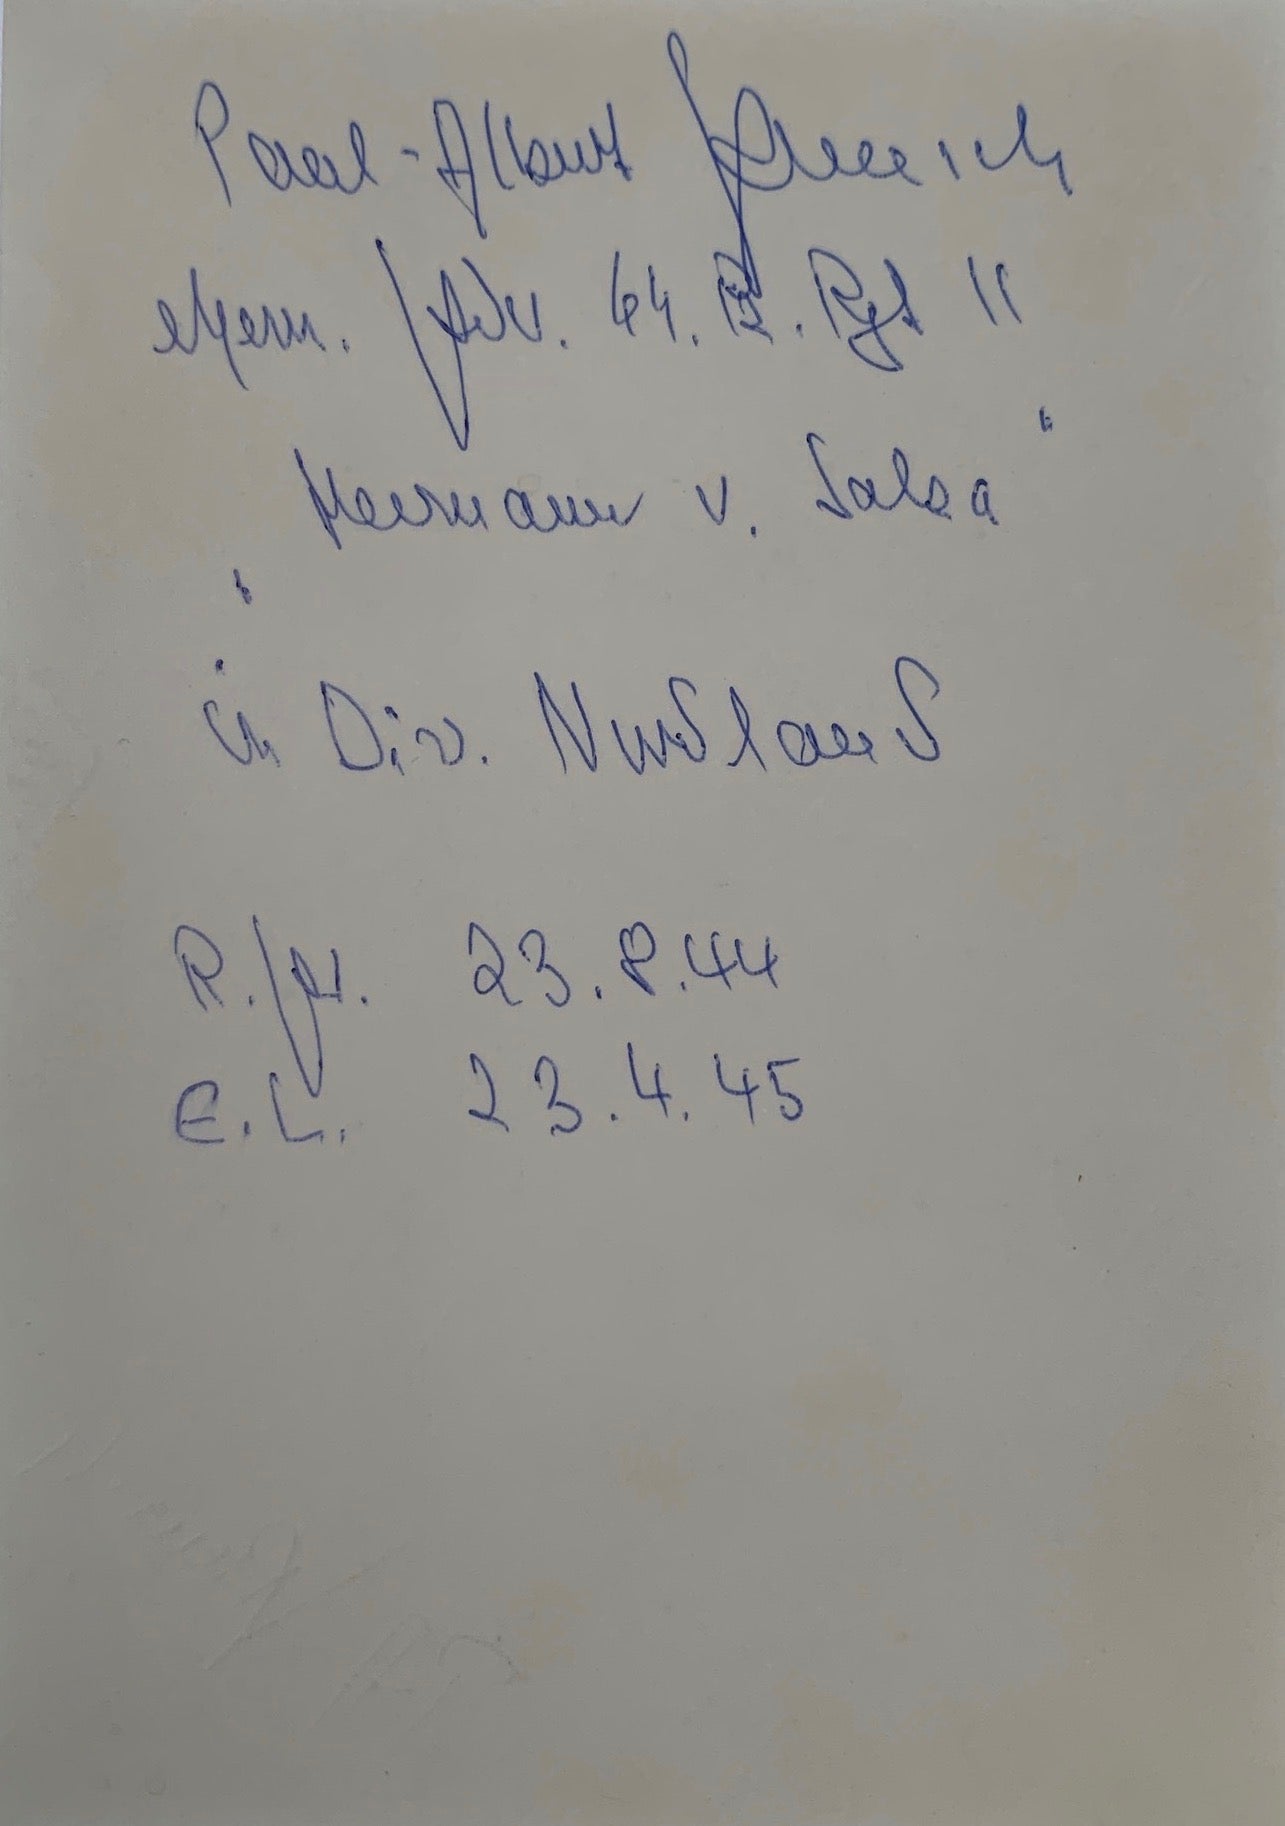 Paul-Albert Kausch
ehem. Kdr. 44. Pz. Rgt 11
"Hermann v. Salza"
in Div. Nordland
R.K. 23.8.44
E.L. 23.4.45